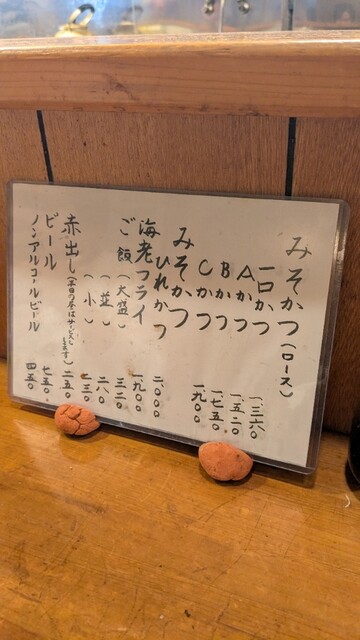 みそかつ(ロース)
一口かつ 一.三六〇
Aかつ 一.五二〇
Bかつ 一.七五〇
Cかつ 一.九〇〇
みそかつ
ひれかつ 二.〇〇〇
海老フライ 一.九〇〇
ご飯(大盛) 三二〇
(並) 二八〇
(小) 二三〇
赤出し(平日の昼はサービスします) 二五〇
ビール 七五〇
ノンアルコールビール 四五〇